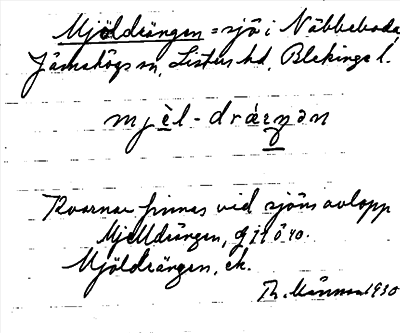 Mjöldrängen = sjö i Näbbeboda,
Jämshögs sn, Listers hd, Blekinge l.
mjèl-dráeŋən
Kvarnar finnas vid sjöns avlopp
Mjelldrängen,
Mjöldrängen, ek.
1930